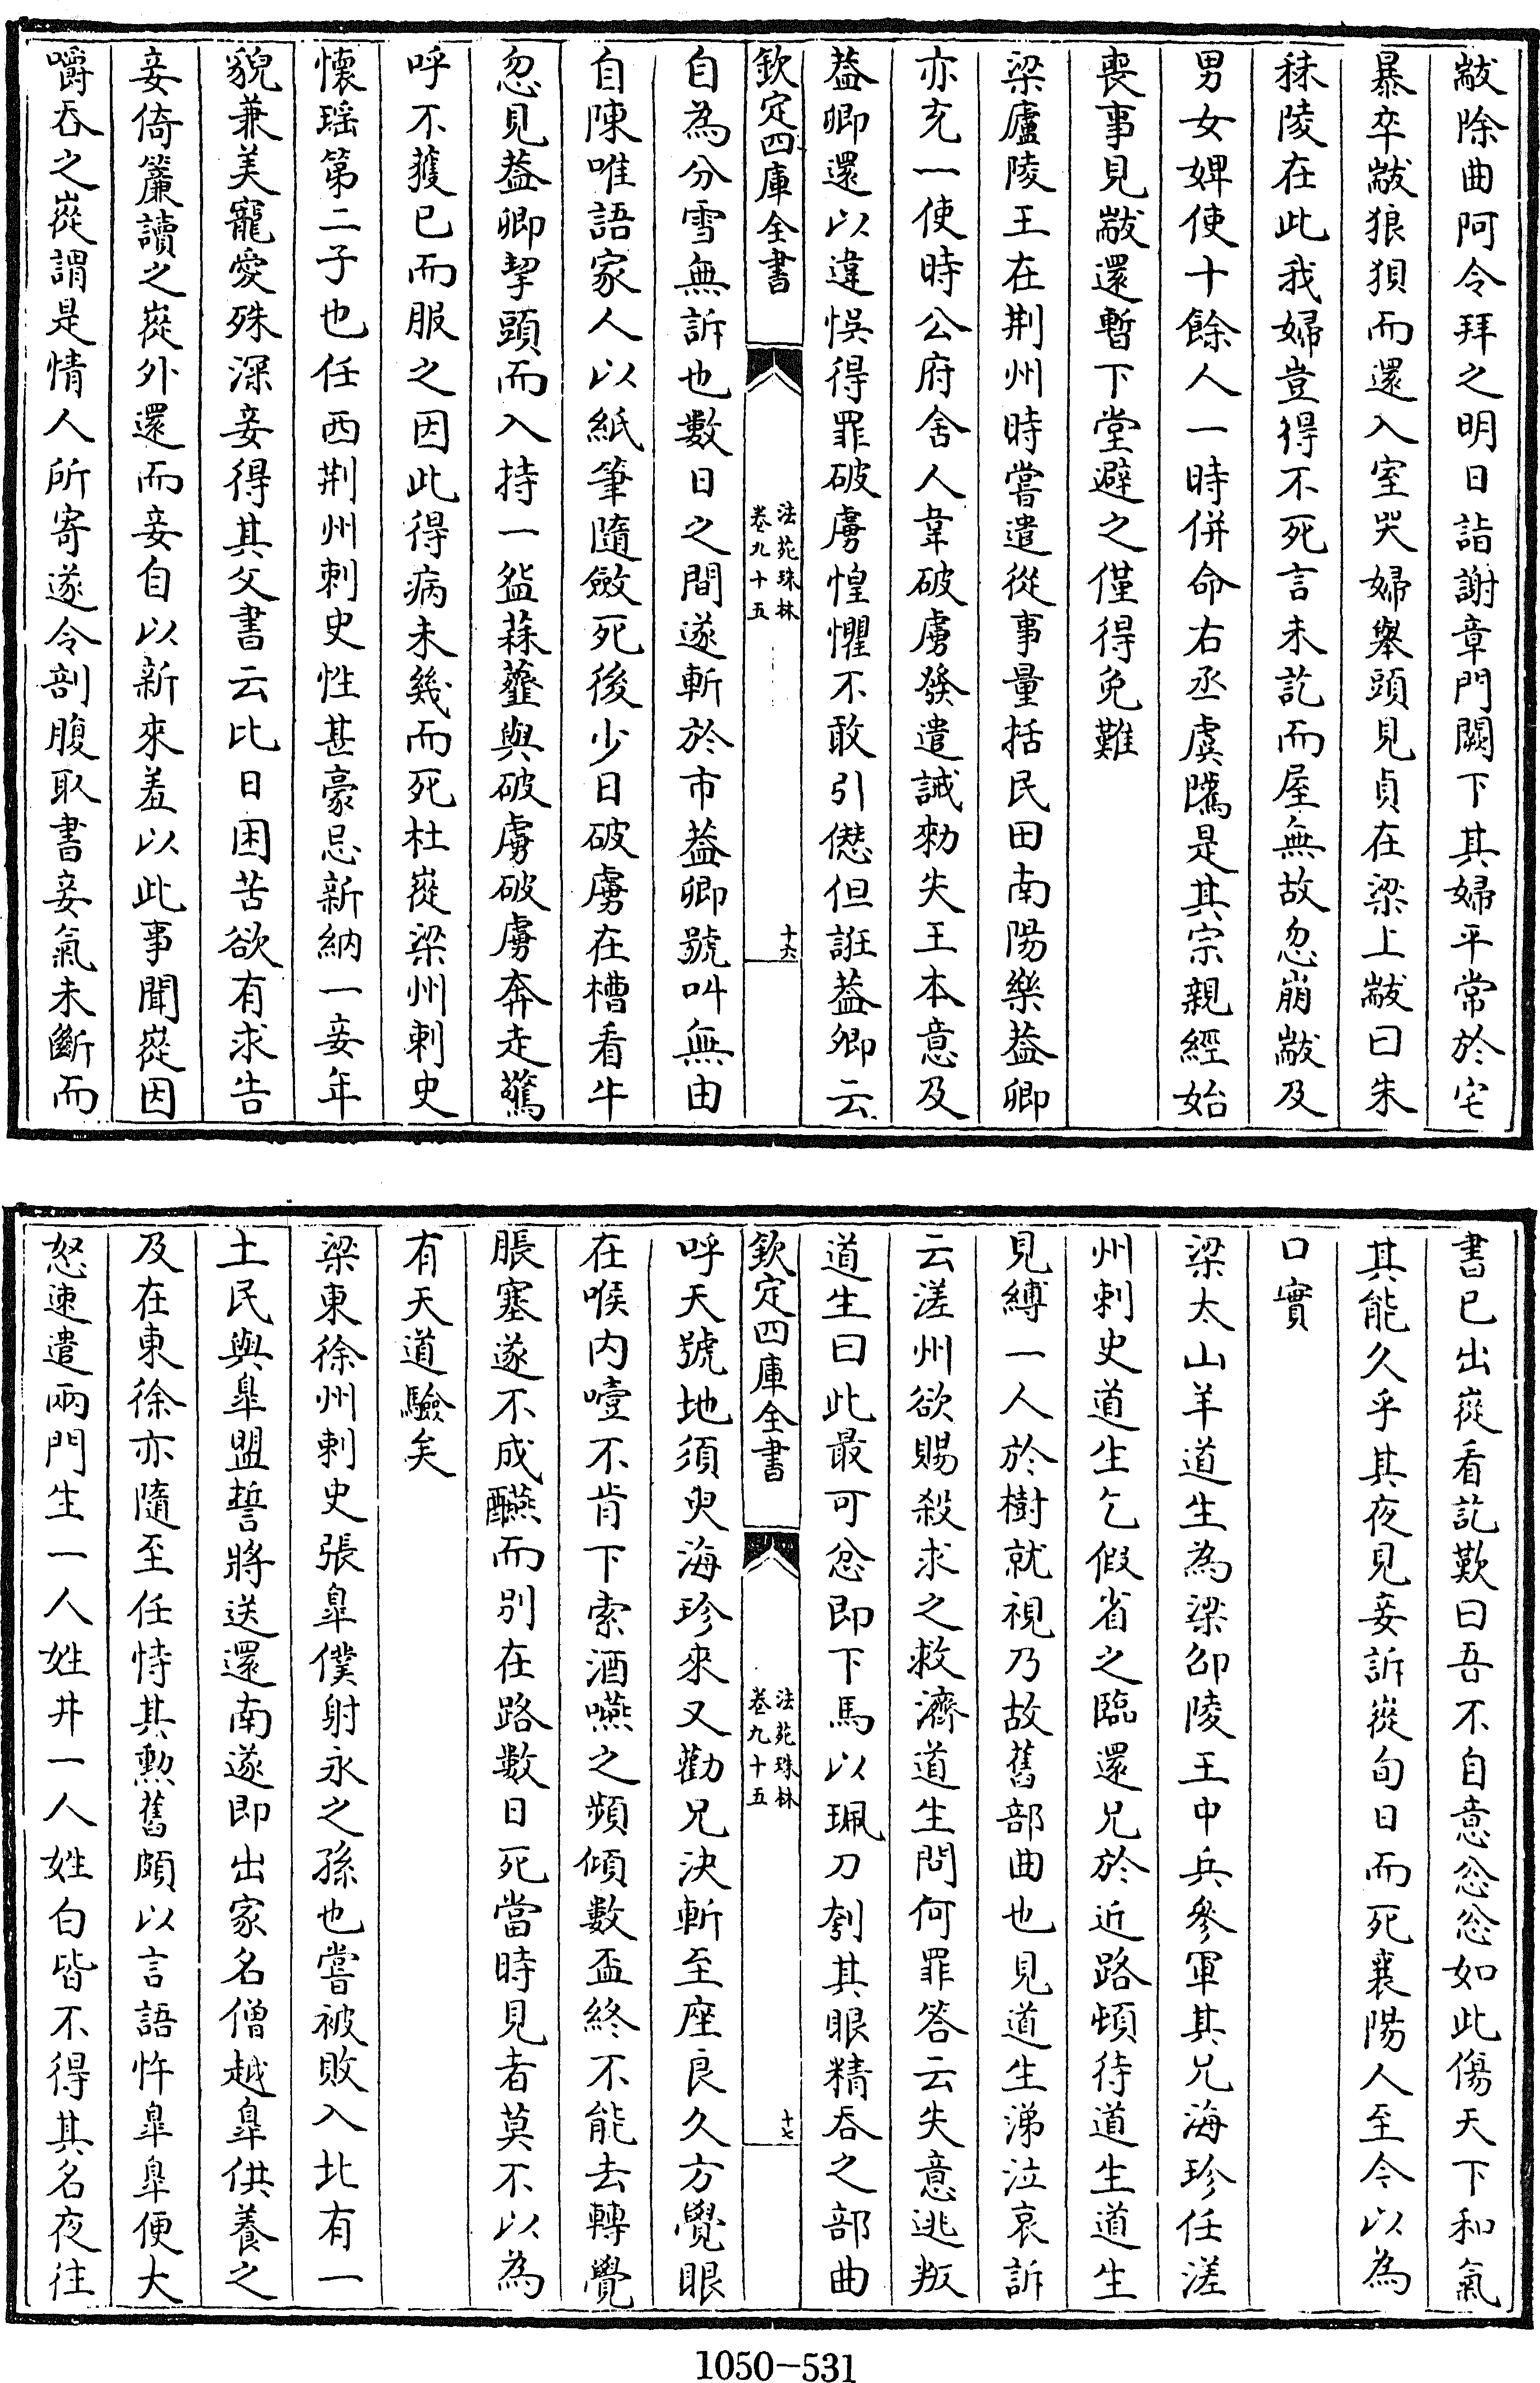 敲除曲阿令拜之明日詣謝章門闕下其婦平常於宅
暴卒敲狼狽而還入室哭婦舉頭見貞在梁上敲曰朱
秣陵在此我婦豈得不死言未訖而屋無故忽崩敲及
男女婢使十餘人一時併命右丞虞騭是其宗親經始
喪事見敲還暫下堂避之僅得免難
梁廬陵王在荆州時嘗遣從事量括民田南陽樂葢卿
亦充一使時公府舍人韋破虜發遣誡勑失王本意及
葢卿還以違悞得罪破虜惶懼不敢引愆但誑葢卿云
欽定四庫全書
法苑珠林
卷九十五
十六
自為分雪無訴也數日之間遂斬於市葢卿號叫無由
自陳唯語家人以紙筆隨斂死後少日破虜在槽看牛
忽見葢卿挈頭而入持一㿻蒜虀與破虜破虜奔走驚
呼不獲已而服之因此得病未幾而死杜嶷梁州刺史
懷瑶第二子也任西荆州刺史性甚豪忌新納一妾年
貌兼美寵愛殊深妾得其父書云比日困苦欲有求告
妾倚簾讀之嶷外還而妾自以新來羞以此事聞嶷因
嚼吞之嶷謂是情人所寄遂令剖腹取書妾氣未斷而
書已出嶷看訖歎曰吾不自意忿忿如此傷天下和氣
其能久乎其夜見妾訴嶷旬日而死襄陽人至今以為
口實
梁太山羊道生為梁邵陵王中兵參軍其兄海珍任溠
州刺史道生乞假省之臨還兄於近路頓待道生道生
見縛一人於樹就視乃故舊部曲也見道生涕泣哀訴
云溠州欲賜殺求之救濟道生問何罪答云失意逃叛
道生曰此最可忿即下馬以珮刀刳其眼精吞之部曲
欽定四庫全書
法苑珠林
卷九十五
十七
呼天號地須臾海珍來又勸兄決斬至座良久方覺眼
在喉内噎不肯下索酒嚥之頻傾數盃終不能去轉覺
脹塞遂不成醼而別在路數日死當時見者莫不以為
有天道驗矣
梁東徐州刺史張臯僕射永之孫也嘗被敗入北有一
土民與臯盟誓將送還南遂即出家名僧越臯供養之
及在東徐亦隨至任恃其勲舊頗以言語忤臯臯便大
怒速遣兩門生一人姓井一人姓白皆不得其名夜往
1050-531